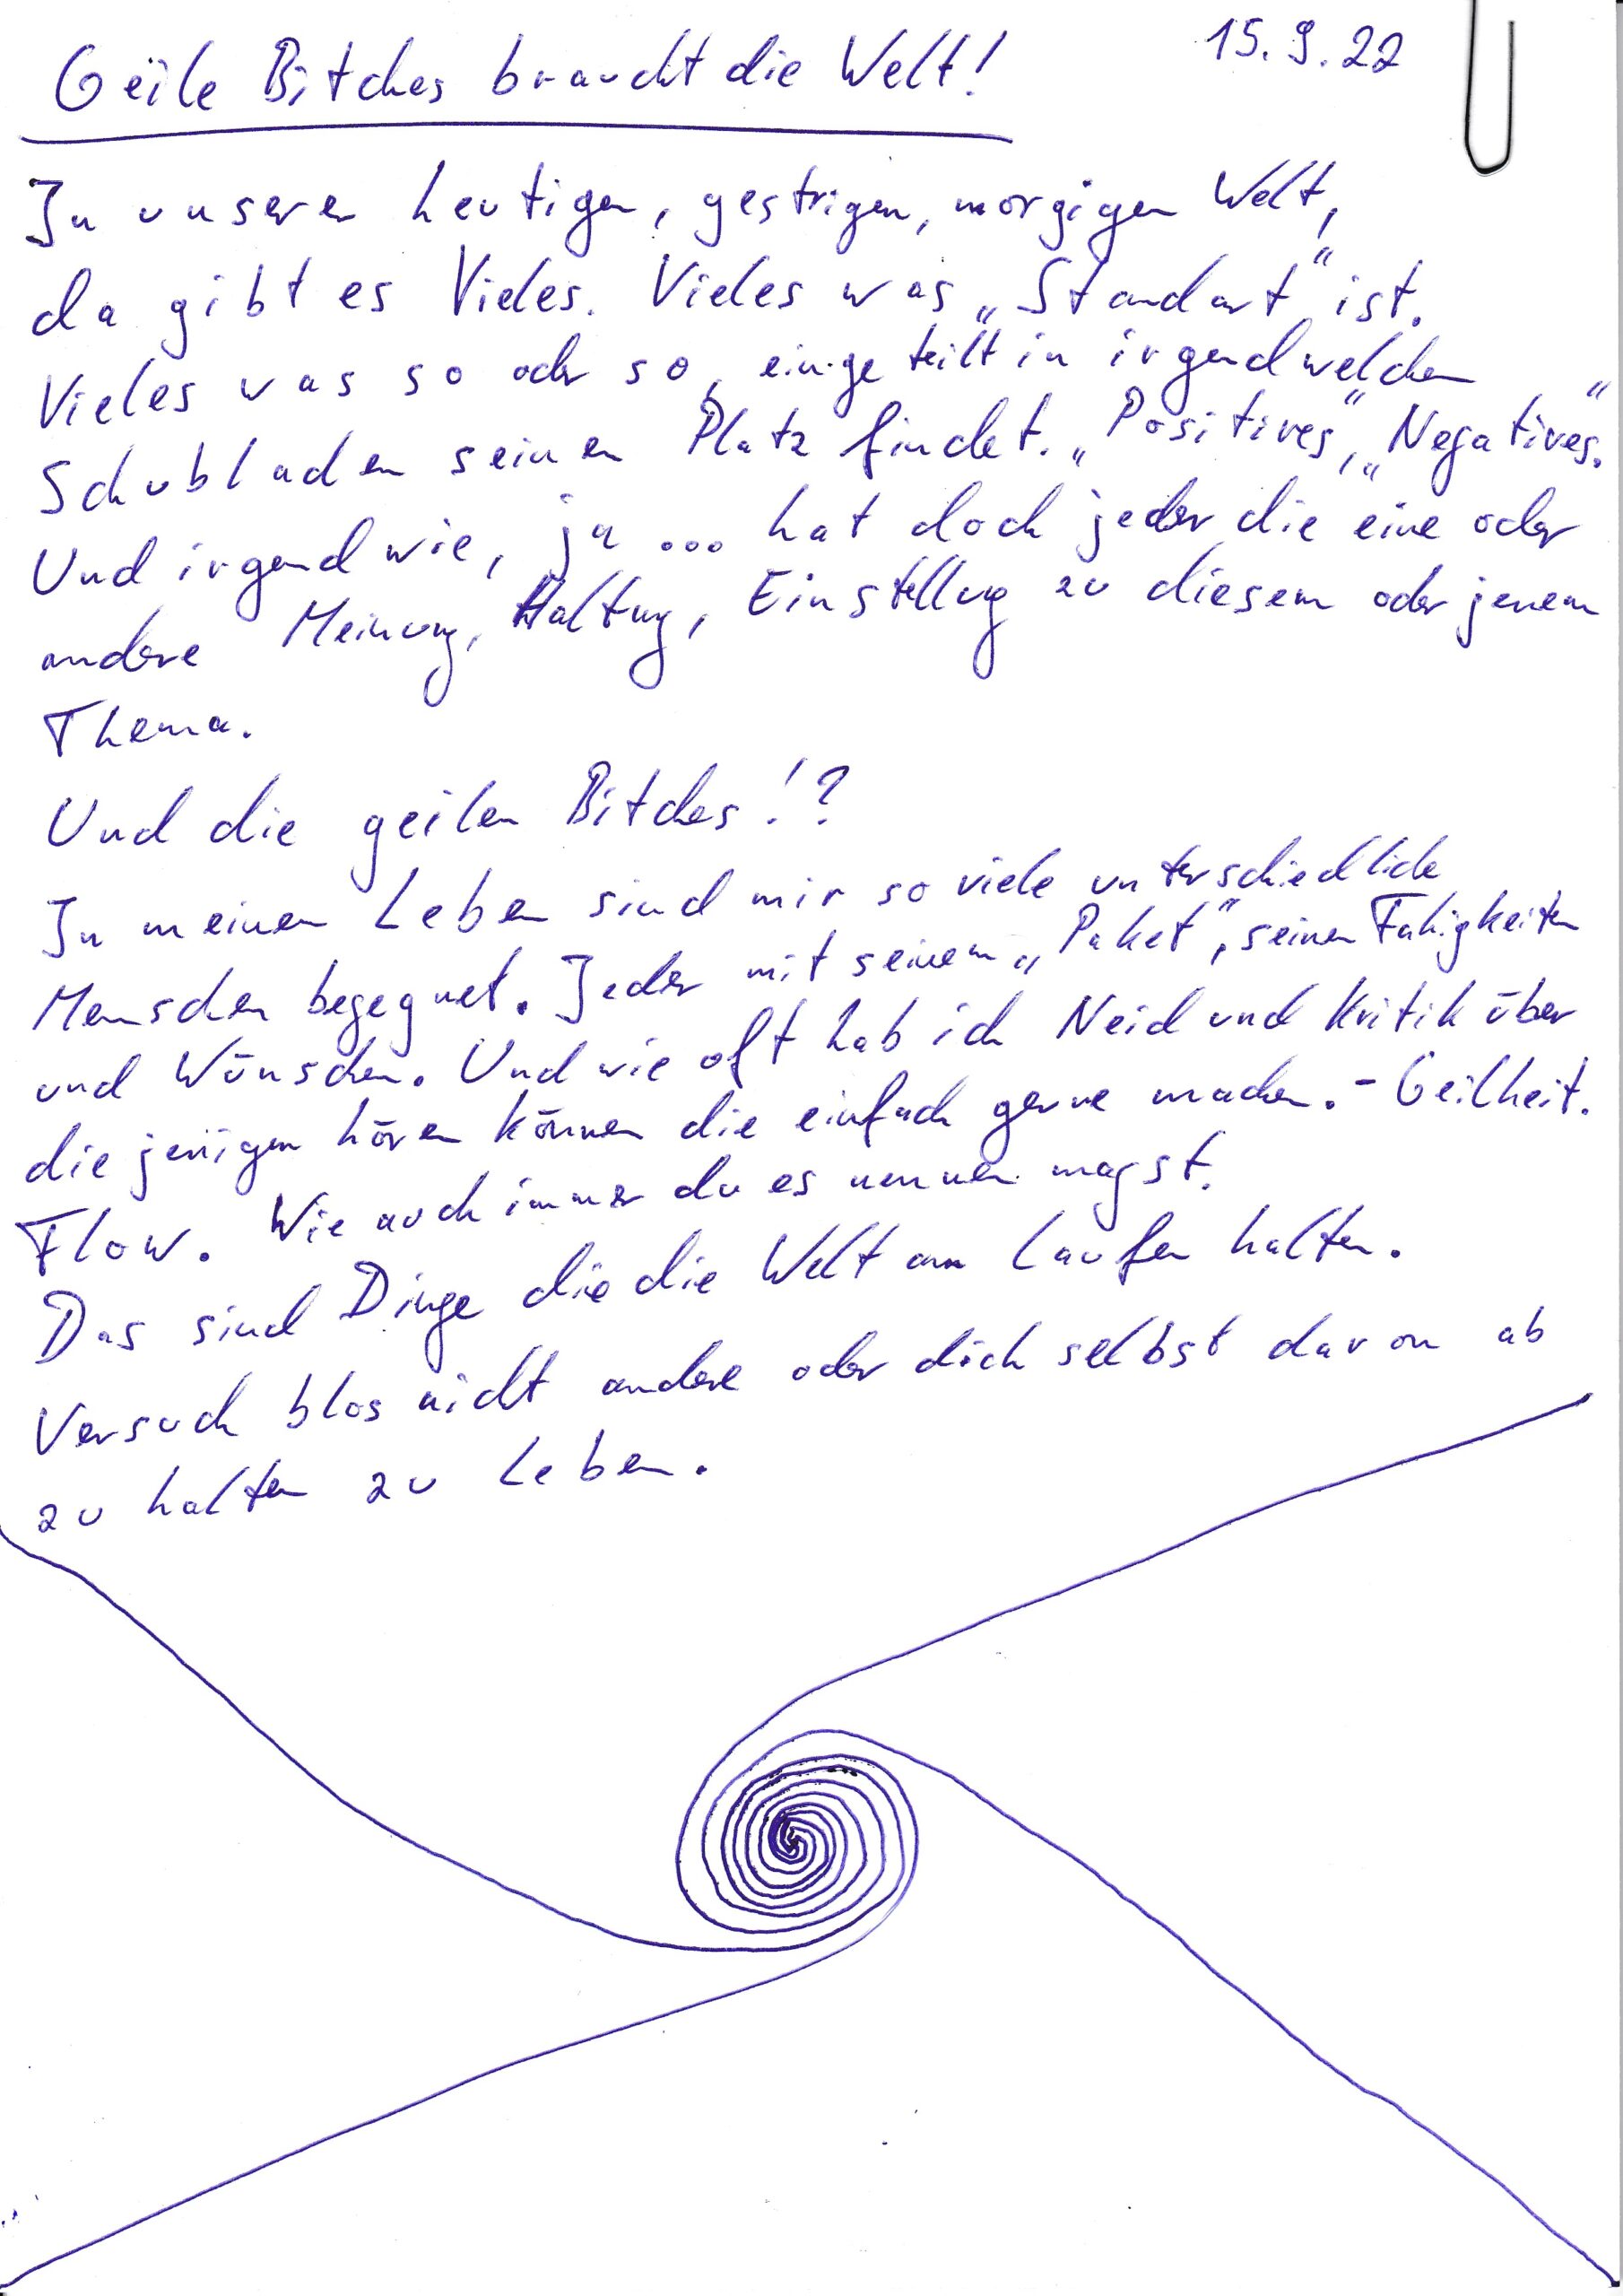 Geile Bitches braucht die Welt! 15.9.22
In unserer heutigen, gestrigen, morgigen Welt,
da gibt es Vieles. Vieles was „Standart" ist.
Vieles was so oder so, eingeteilt in irgendwelchen
Schubladen seinen Platz findet. „Positives", „Negatives".
Und irgendwie, ja ... hat doch jeder die eine oder
andere Meinung, Haltung, Einstellung zu diesem oder jenem
Thema.
Und die geilen Bitches!?
In meinen Leben sind mir so viele unterschiedliche
Menschen begegnet. Jeder mit seinem „Paket", seinen Fähigkeiten
und Wünschen. Und wie oft hab ich Neid und Kritik über
die jenigen hören können die einfach gerne machen. - Geilheit.
Flow. Wie auch immer du es nennen magst.
Das sind Dinge die die Welt am Laufen halten.
Versuch blos nicht andere oder dich selbst davon ab
zu halten zu Leben.